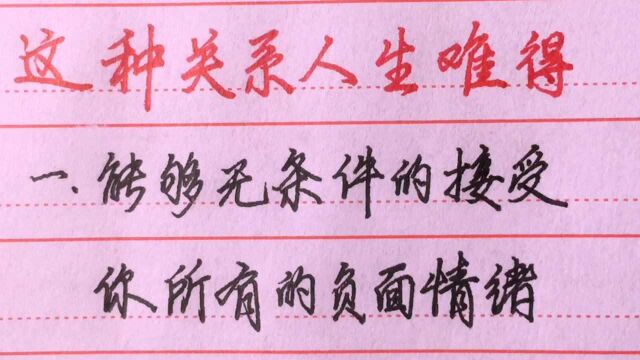 这种关系人生唯得
一.能够无条件的接受
你所有的负面情绪